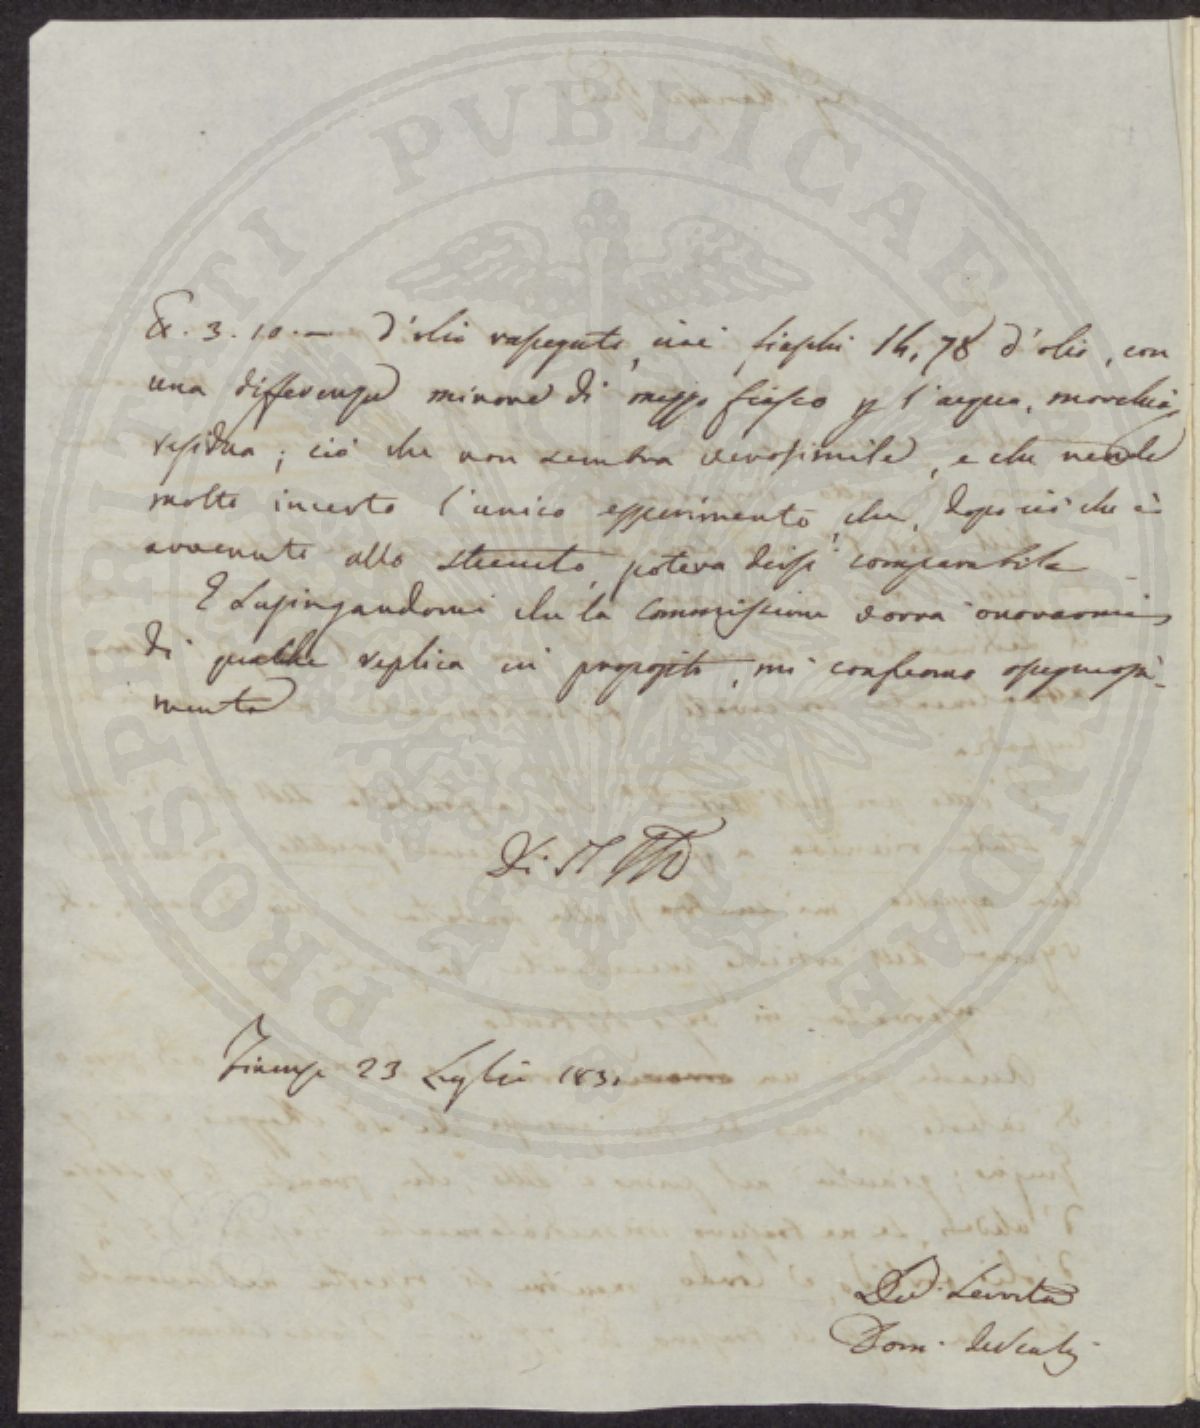 PROSPERITATI PVBLICAE AVGENDAE
3. 10. — d'olio rassegato, cioè fiaschi 14,78 d'olio, con
una differenza minore di mezzo fiasco p l'acqua, morchia
residua; ciò che non sembra verosimile, e che rende
molto incerto l'unico esperimento che, dopo ciò che è
avvenuto allo strettoio, poteva dirsi comparabile
E Lusingandomi che la Commissione vorrà onorarmi
di qualche replica in proposito, mi confermo ossequiosa-
mente
Firenze 23 Luglio 183
Dev. Servitore
Dom.